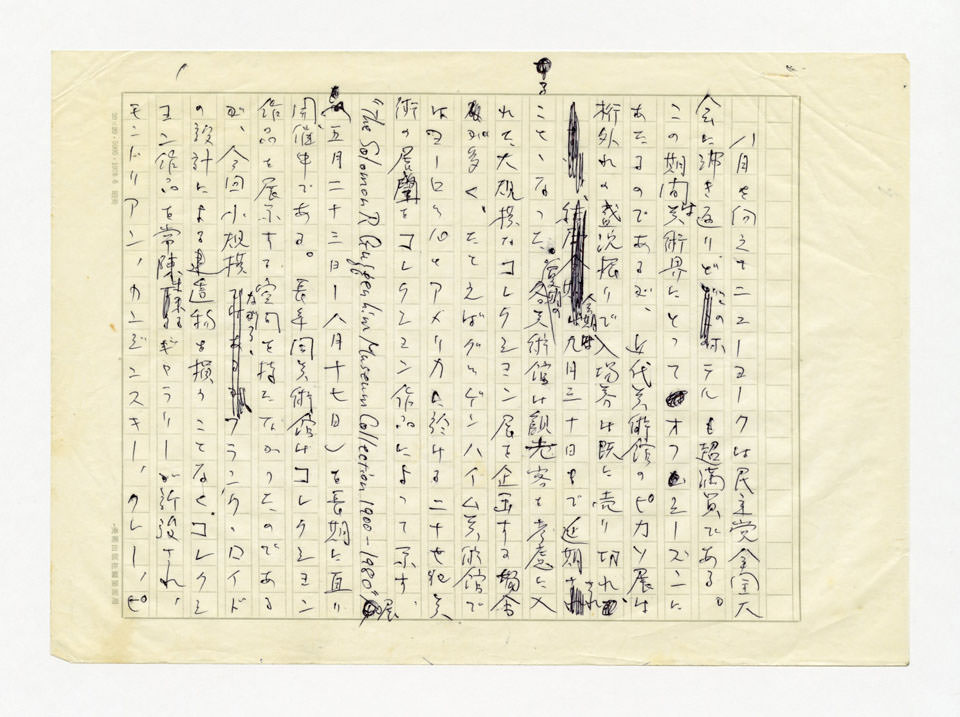 八月を向えてニューヨークは民主党全国大
会に沸き返りどこのホテルも超満員である。
この期間は美術界にとってオフシーズンに
あたるのであるが、近代美術館のピカソ展は
桁外れの盛況振りで入場券は既に売り切れ、
会期は九月三十日まで延期され
ることになった。夏期の各美術館は観光客を考慮に入
れて大規模なコレクション展を企画する場合
が多く、たとえばグッゲンハイム美術館で
はヨーロッパとアメリカに於ける二十世紀美
術の展望をコレクション作品によって示す、
"The Solomon R Guggenheim Museum Collection 1900-1980" 展
(五月二十三日ー八月十七日)を長期に亘り
開催中である。長年同美術館はコレクション
作品を展示する空間を持たなかったのである
が、今回小規模ながら、フランク・ロイド
の設計による建造物を損うことなく、コレクシ
ョン作品を常陳するギャラリーが新設され、
モンドリアン、カンディンスキー、クレー、ピ